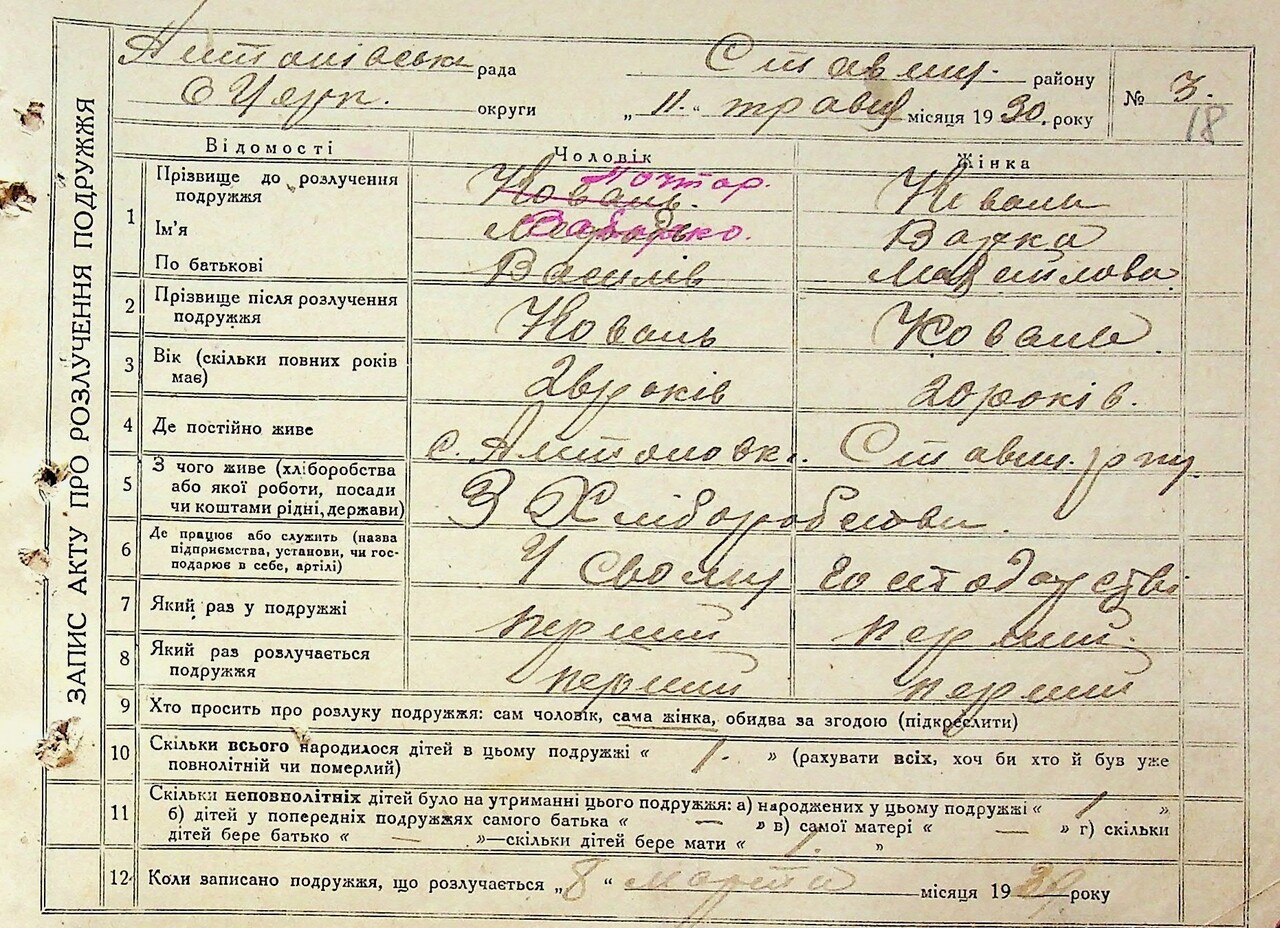 ЗАПИС АКТУ ПРО РОЗЛУЧЕННЯ ПОДРУЖЖЯ
Антонівська рада Ставищ. району
Б Церк. округи „11“ травня місяця 1930. року
№ 3.
18
Відомості Чоловік Жінка
1 Прізвище до розлучення подружжя Коваль. Коваль
Ім'я Варка
По батькові Василів Мафтеілова
2 Прізвище після розлучення подружжя Коваль Коваль
3 Вік (скільки повних років має) років 20 років.
4 Де постійно живе с. Антоновка. Ставищ. р ну
5 З чого живе (хліборобства або якої роботи, посади чи коштами рідні, держави) З Хліборобства.
6 Де працює або служить (назва підприємства, установи, чи господарює в себе, артілі) У свому господарстві
7 Який раз у подружжі перший перший
8 Який раз розлучається подружжя перший перший
9 Хто просить про розлуку подружжя: сам чоловік, сама жінка, обидва за згодою (підкреслити)
10 Скільки всього народилося дітей в цьому подружжі « 1. » (рахувати всіх, хоч би хто й був уже
повнолітній чи померлий)
11 Скільки неповнолітніх дітей було на утриманні цього подружжя: а) народжених у цьому подружжі « 1 »
б) дітей у попередніх подружжях самого батька « — » в) самої матері « — » г) скільки
дітей бере батько « — »—скільки дітей бере мати « 1. »
12 Коли записано подружжя, що розлучається „8“ марта місяця 19 року